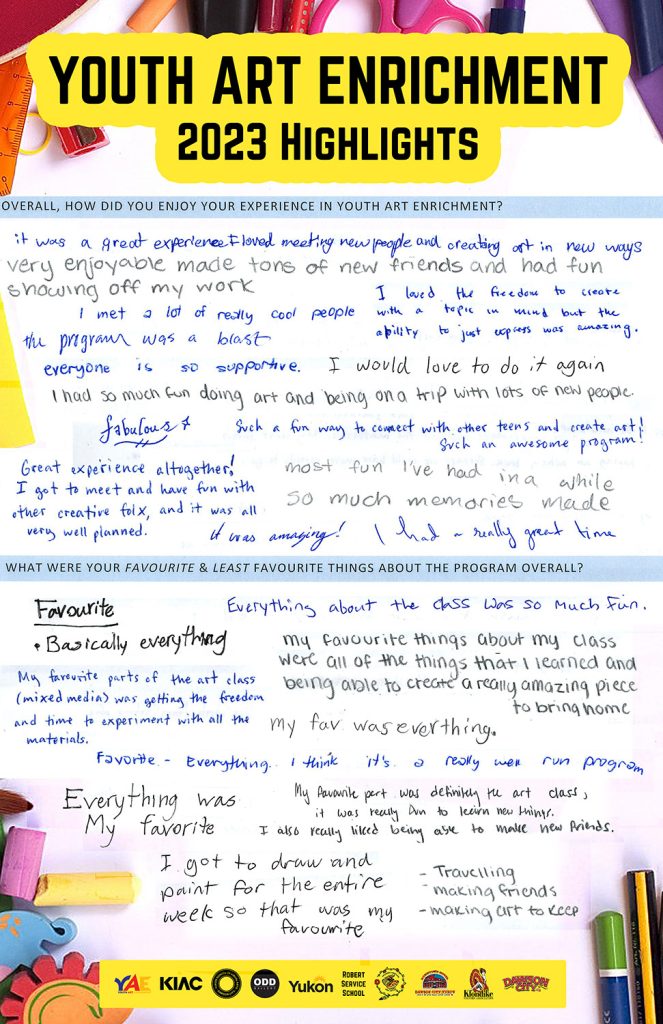 YOUTH ART ENRICHMENT
2023 HIGHLIGHTS
OVERALL, HOW DID YOU ENJOY YOUR EXPERIENCE IN YOUTH ART ENRICHMENT?
it was a great experience I loved meeting new people and creating art in new ways
very enjoyable made tons of new friends and had fun
showing off my work
I met a lot of really cool people
I loved the freedom to create
with a topic in mind but the
ability to just express was amazing.
the program was a blast
everyone is so supportive.
I would love to do it again
I had so much fun doing art and being on a trip with lots of new people.
fabulous
Such a fun way to connect with other teens and create art!
Such an awesome program!
Great experience altogether!
I got to meet and have fun with
other creative folx, and it was all
very well planned.
most fun I've had in a while
so much memories made
it was amazing!
I had a really great time
WHAT WERE YOUR FAVOURITE & LEAST FAVOURITE THINGS ABOUT THE PROGRAM OVERALL?
Favourite
• Basically everything
Everything about the class was so much fun.
my favourite things about my class
were all of the things that I learned and
being able to create a really amazing piece
to bring home
My favourite parts of the art class
(mixed media) was getting the freedom
and time to experiment with all the
materials.
my fav was everthing.
Favorite - Everything. I think it's a really well run program
Everything was
My favorite
My favourite part was definitely the art class,
it was really fun to learn new things.
I also really liked being able to make new friends.
I got to draw and
paint for the entire
week so that was my
favourite
- Travelling
- making friends
- making art to keep
YAE
KIAC
ODD
Yukon
ROBERT
SERVICE
SCHOOL
Klondike
DAWSON
CITY